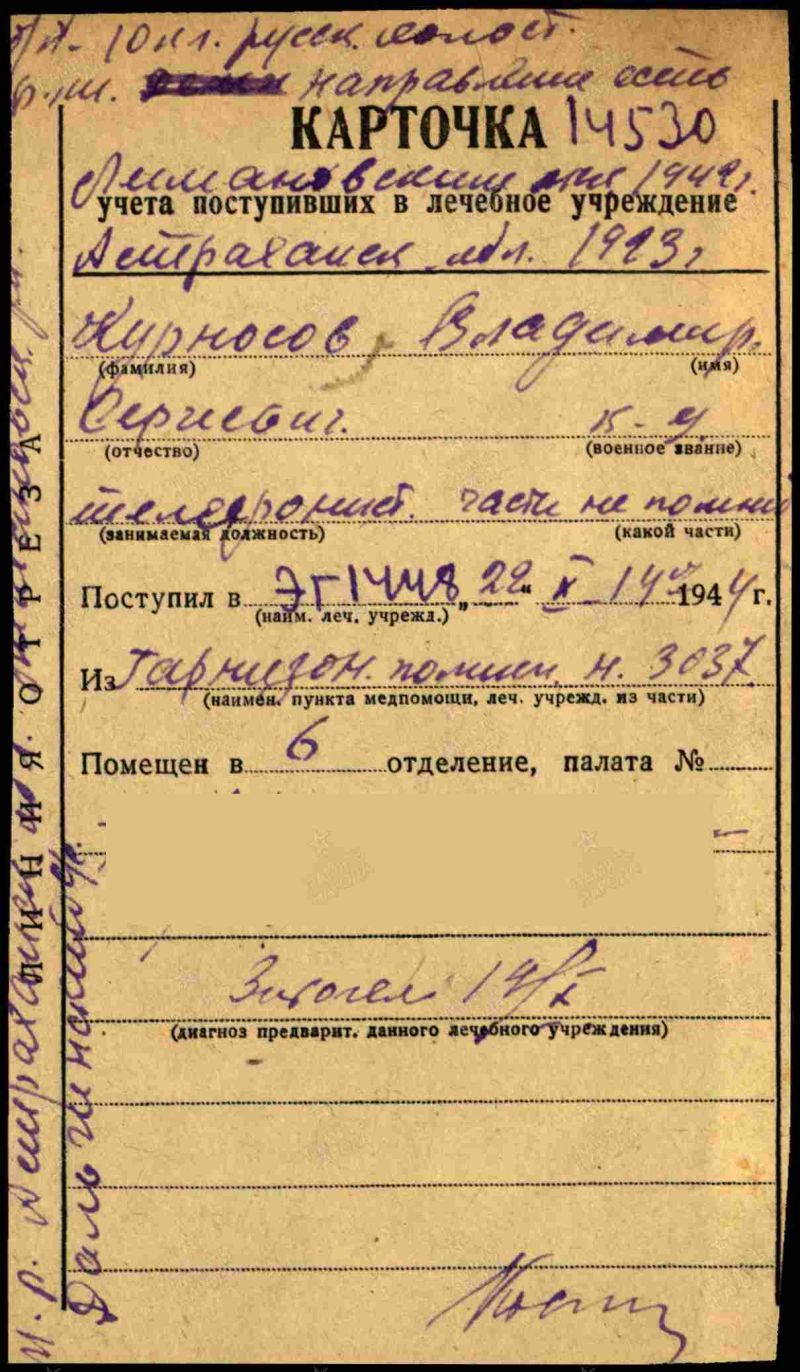 б/п - 10 кл. русск. холост.
направление есть
КАРТОЧКА 14530
Лимановским 1942г.
учета поступивших в лечебное учреждение
Астраханск обл. 1923г
Курносов Владимир.
(фамилия) (имя)
Сергиевич. к-ц
(отчество) (военное звание)
телефонист. части не помнит
(занимаемая должность) (какой части)
Поступил в ЭГ 1448 „ 22 “ X 14 ч 1944 г.
(наим. леч. учрежд.)
Из Гарнизон. поликл. н. 3037
(наимен. пункта медпомощи, леч. учрежд. из части)
Помещен в 6 отделение, палата №
14/X
(диагноз предварит. данного лечебного учреждения)
ЛИНИЯ ОТРЕЗА
м. р. Астраханская